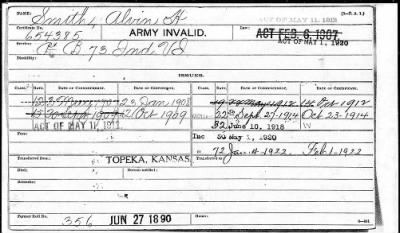 NAME: Smith, Alvin H [3-P. A.]
ACT OF MAY 11, 1912
Certificate No. 654385 ARMY INVALID. Law: ACT FEB. 6, 1907
ACT OF MAY 1, 1920
Service: B 73 Ind. Vol
Disability:
ISSUES.
CLASS. RATE. DATE OF COMMENCEMENT. DATE OF CERTIFICATE. CLASS. RATE. DATE OF COMMENCEMENT. DATE OF CERTIFICATE.
12 23 Jan 1908 19 May 1912 Oct 1912
15 Sept 1909 2 Oct 1909 22 Sept. 27-1914 Oct 23-1914
ACT OF MAY 11, 1912. 32 June 10, 1918
Inc 50 May 1, 1920
72 Jan 4 1922 Feb 1 1922
Transferred from TOPEKA, KANSAS,
Death notified:
Transferred to
Remarks:
Former Roll No. 356 JUN 27 1890